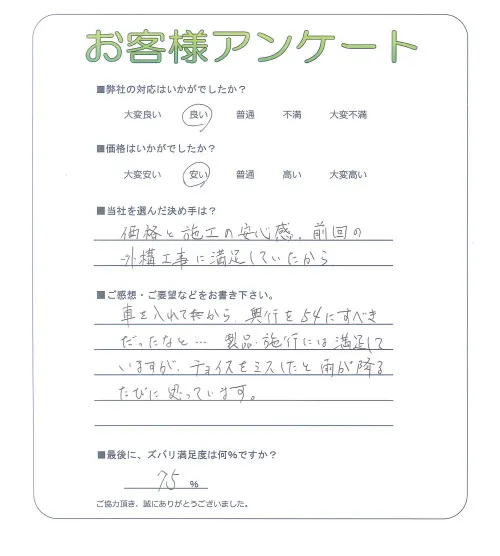 お客様アンケート
■弊社の対応はいかがでしたか？
大変良い 良い 普通 不満 大変不満
■価格はいかがでしたか？
大変安い 安い 普通 高い 大変高い
■当社を選んだ決め手は？
価格と施工の安心感、前回の
外構工事に満足していたから
■ご感想・ご要望などをお書き下さい。
車を入れてから、奥行を54にすべき
だったなと… 製品・施行には満足して
いますが、チョイスをミスしたと雨が降る
たびに思っています。
■最後に、ズバリ満足度は何%ですか？
75 %
ご協力頂き、誠にありがとうございました。